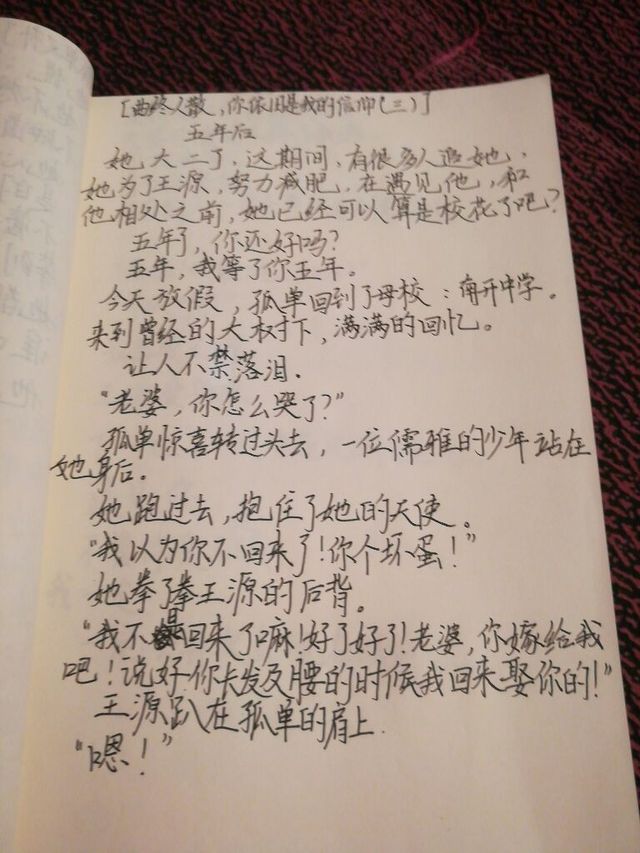 [曲终人散，你依旧是我的信仰(三)]
五年后
她大二了，这期间，有很多人追她，
她为了王源，努力减肥，在遇见他，和
他相处之前，她已经可以算是校花了吧？
五年了，你还好吗？
五年，我等了你五年。
今天放假，孤单回到了母校：南开中学。
来到曾经的大树下，满满的回忆。
让人不禁落泪.
"老婆，你怎么哭了？"
孤单惊喜转过头去，一位儒雅的少年站在
她身后。
她跑过去，抱住了她的天使。
"我以为你不回来了！你个坏蛋！"
她拳了拳王源的后背。
"我不是回来了嘛！好了好了！老婆，你嫁给我
吧！说好你长发及腰的时候我回来娶你的！"
王源趴在孤单的肩上.
"嗯！"